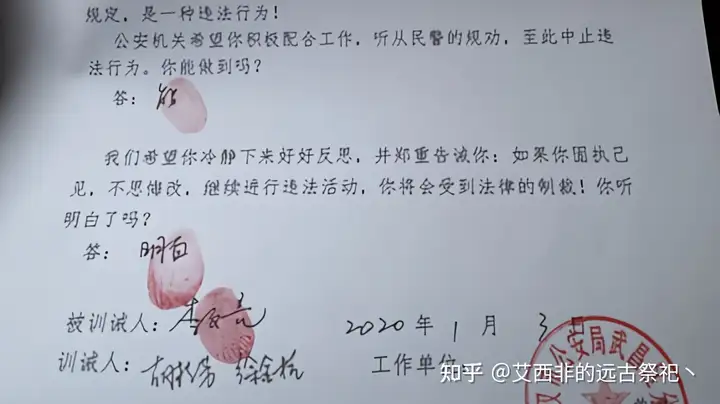 规定，是一种违法行为！
公安机关希望你积极配合工作，听从民警的规劝，至此中止违
法行为。你能做到吗？
答：能
我们希望你冷静下来好好反思，并郑重告诫你：如果你固执己
见，不思悔改，继续进行违法活动，你将会受到法律的制裁！你听
明白了吗？
答：明白
被训诫人：李文亮 2020年1月3日
训诫人：徐金杭 工作单位
公安局武昌
知乎 @艾西非的远古祭祀丶